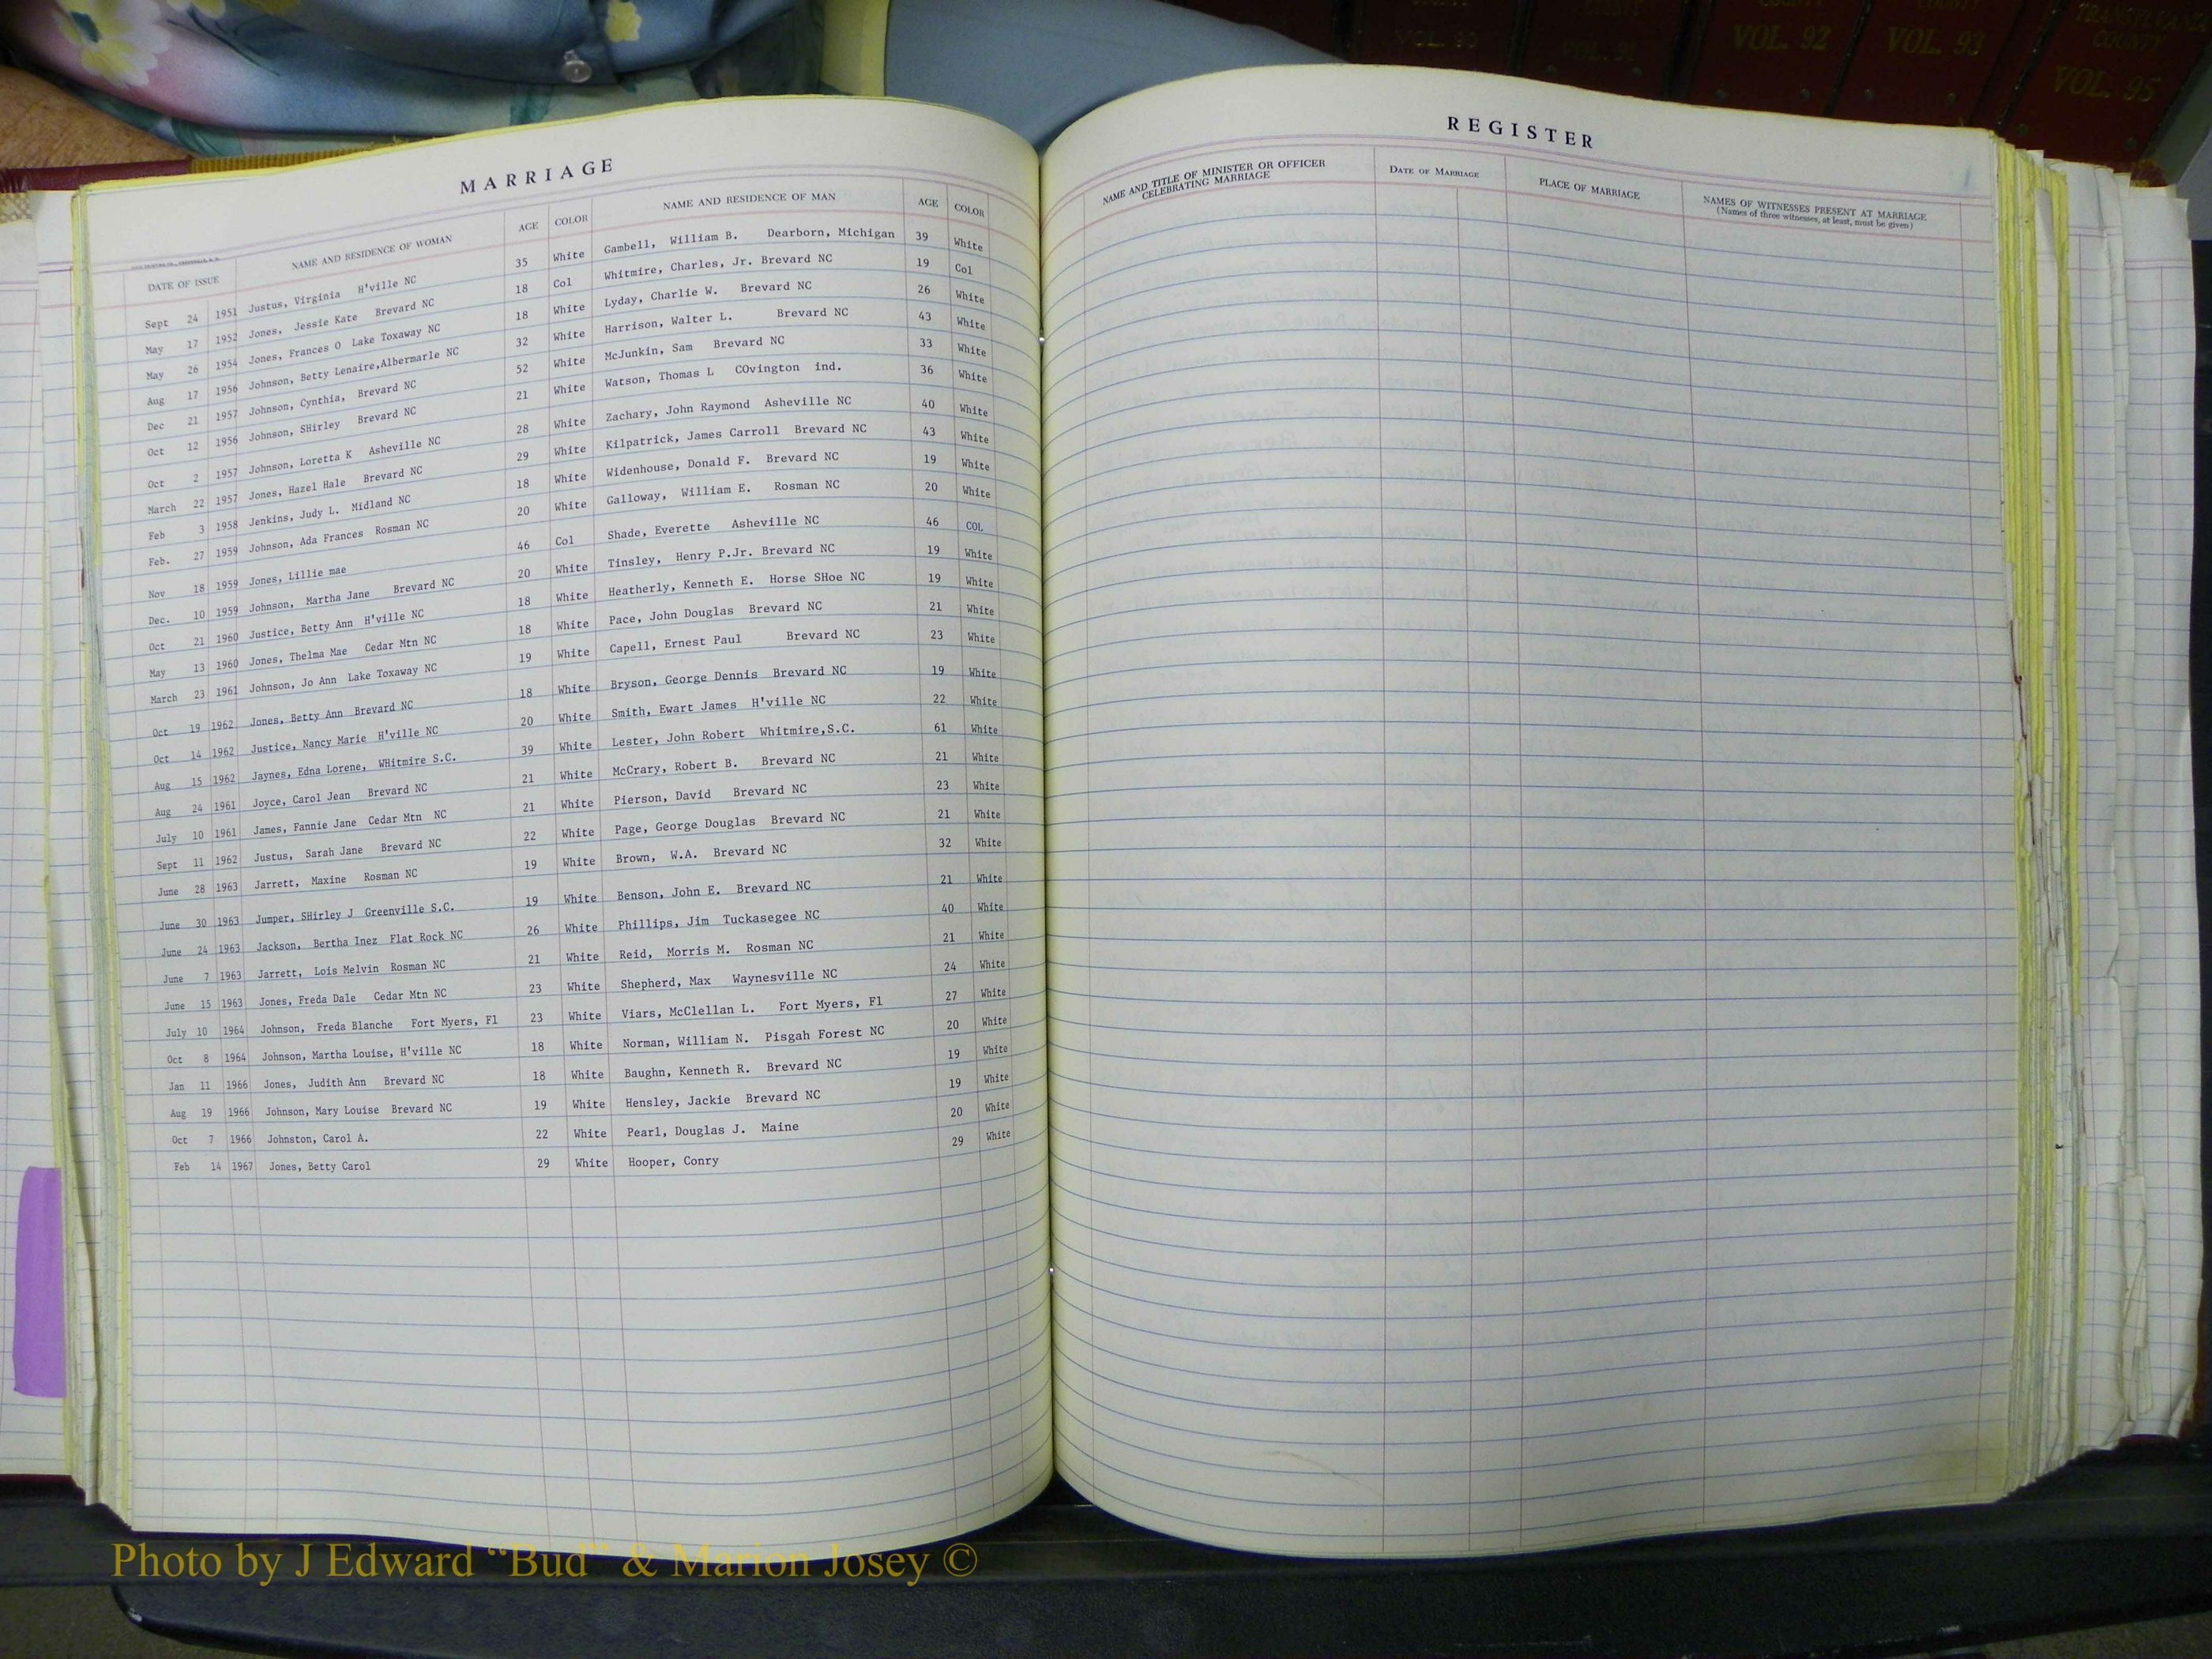 VOL. 90
VOL. 91
COUNTY
VOL. 92
COUNTY
VOL. 93
TRANSYLVANIA
COUNTY
VOL. 95
MARRIAGE
DATE OF ISSUE NAME AND RESIDENCE OF WOMAN AGE COLOR NAME AND RESIDENCE OF MAN AGE COLOR
Sept 24 1951 Justus, Virginia H'ville NC 35 White Gambell, William B. Dearborn, Michigan 39 White
May 17 1952 Jones, Jessie Kate Brevard NC 18 Col Whitmire, Charles, Jr. Brevard NC 19 Col
May 26 1954 Jones, Frances O Lake Toxaway NC 18 White Lyday, Charlie W. Brevard NC 26 White
Aug 17 1956 Johnson, Betty Lenaire,Albermarle NC 32 White Harrison, Walter L. Brevard NC 43 White
Dec 21 1957 Johnson, Cynthia, Brevard NC 52 White McJunkin, Sam Brevard NC 33 White
Oct 12 1956 Johnson, SHirley Brevard NC 21 White Watson, Thomas L COvington ind. 36 White
Oct 2 1957 Johnson, Loretta K Asheville NC 28 White Zachary, John Raymond Asheville NC 40 White
March 22 1957 Jones, Hazel Hale Brevard NC 29 White Kilpatrick, James Carroll Brevard NC 43 White
Feb 3 1958 Jenkins, Judy L. Midland NC 18 White Widenhouse, Donald F. Brevard NC 19 White
Feb. 27 1959 Johnson, Ada Frances Rosman NC 20 White Galloway, William E. Rosman NC 20 White
Nov 18 1959 Jones, Lillie mae 46 Col Shade, Everette Asheville NC 46 COL
Dec. 10 1959 Johnson, Martha Jane Brevard NC 20 White Tinsley, Henry P.Jr. Brevard NC 19 White
Oct 21 1960 Justice, Betty Ann H'ville NC 18 White Heatherly, Kenneth E. Horse SHoe NC 19 White
May 13 1960 Jones, Thelma Mae Cedar Mtn NC 18 White Pace, John Douglas Brevard NC 21 White
March 23 1961 Johnson, Jo Ann Lake Toxaway NC 19 White Capell, Ernest Paul Brevard NC 23 White
Oct 19 1962 Jones, Betty Ann Brevard NC 18 White Bryson, George Dennis Brevard NC 19 White
Oct 14 1962 Justice, Nancy Marie H'ville NC 20 White Smith, Ewart James H'ville NC 22 White
Aug 15 1962 Jaynes, Edna Lorene, WHitmire S.C. 39 White Lester, John Robert Whitmire,S.C. 61 White
Aug 24 1961 Joyce, Carol Jean Brevard NC 21 White McCrary, Robert B. Brevard NC 21 White
July 10 1961 James, Fannie Jane Cedar Mtn NC 21 White Pierson, David Brevard NC 23 White
Sept 11 1962 Justus, Sarah Jane Brevard NC 22 White Page, George Douglas Brevard NC 21 White
June 28 1963 Jarrett, Maxine Rosman NC 19 White Brown, W.A. Brevard NC 32 White
June 30 1963 Jumper, SHirley J Greenville S.C. 19 White Benson, John E. Brevard NC 21 White
June 24 1963 Jackson, Bertha Inez Flat Rock NC 26 White Phillips, Jim Tuckasegee NC 40 White
June 7 1963 Jarrett, Lois Melvin Rosman NC 21 White Reid, Morris M. Rosman NC 21 White
June 15 1963 Jones, Freda Dale Cedar Mtn NC 23 White Shepherd, Max Waynesville NC 24 White
July 10 1964 Johnson, Freda Blanche Fort Myers, Fl 23 White Viars, McClellan L. Fort Myers, Fl 27 White
Oct 8 1964 Johnson, Martha Louise, H'ville NC 18 White Norman, William N. Pisgah Forest NC 20 White
Jan 11 1966 Jones, Judith Ann Brevard NC 18 White Baughn, Kenneth R. Brevard NC 19 White
Aug 19 1966 Johnson, Mary Louise Brevard NC 19 White Hensley, Jackie Brevard NC 19 White
Oct 7 1966 Johnston, Carol A. 22 White Pearl, Douglas J. Maine 20 White
Feb 14 1967 Jones, Betty Carol 29 White Hooper, Conry 29 White
REGISTER
NAME AND TITLE OF MINISTER OR OFFICER
CELEBRATING MARRIAGE
DATE OF MARRIAGE
PLACE OF MARRIAGE
NAMES OF WITNESSES PRESENT AT MARRIAGE
(Names of three witnesses, at least, must be given)
Photo by J Edward “Bud” & Marion Josey ©